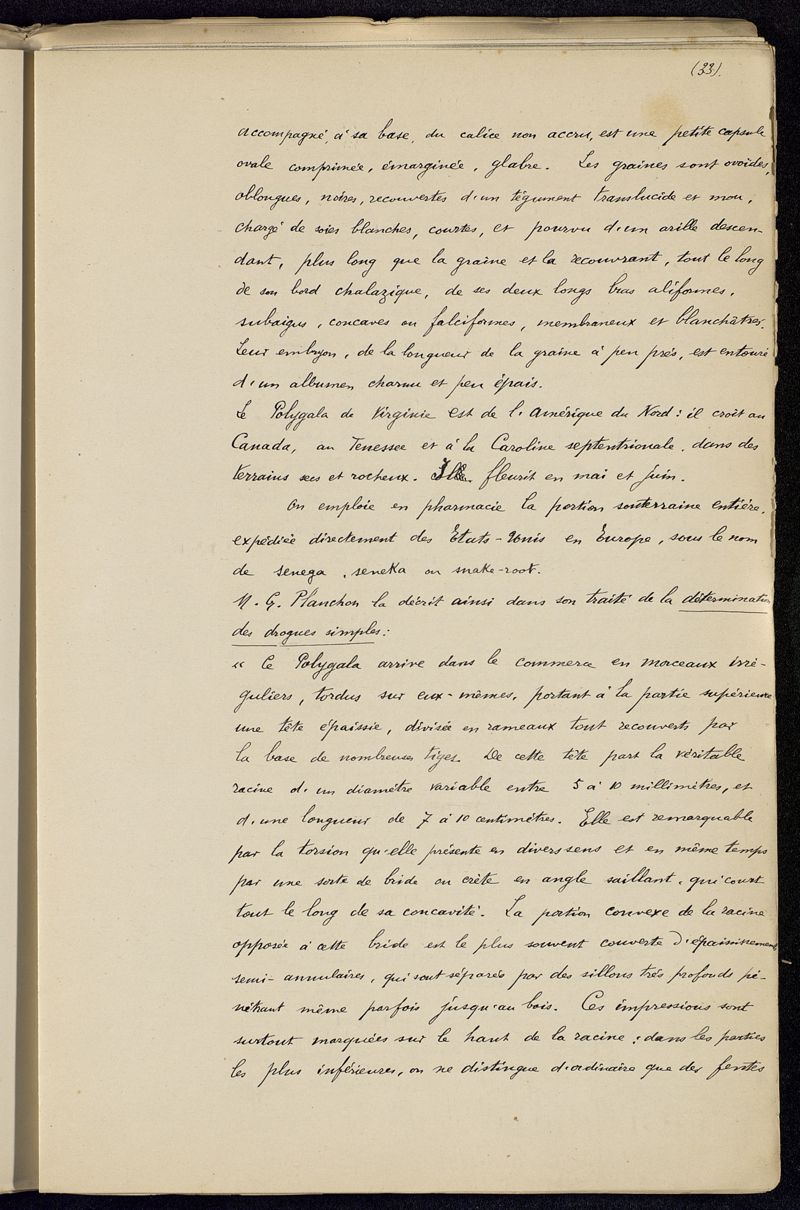 (33).
accompagné, à sa base, du calice non accru, est une petite capsule
ovale comprimée, émarginée, glabre. Les graines sont ovoïdes,
oblongues, noires, recouvertes d'un tégument translucide et mou,
chargé de soies blanches, courtes, et pourvu d'un arille descen-
dant, plus long que la graine et la recouvrant, tout le long
de son bord chalazique, de ses deux longs bras aliformes,
subaigus, concaves ou falciformes, membraneux et blanchâtres.
Leur embryon, de la longueur de la graine à peu près, est entouré
d'un albumen charnu et peu épais.
Le Polygala de Virginie est de l'Amérique du Nord : il croit au
Canada, au Tenessee et à la Caroline septentrionale, dans des
terrains secs et rocheux. Il fleurit en mai et juin.
On emploie en pharmacie la portion souterraine entière,
expédiée directement des Etats-Unis en Europe, sous le nom
de senega, seneka ou snake-root.
M. G. Planchon la décrit ainsi dans son traité de la détermination
des drogues simples :
« Ce Polygala arrive dans le commerce en morceaux irré-
guliers, tordus sur eux-mêmes, portant à la partie supérieure
une tête épaissie, divisée en rameaux tout recouverts par
la base de nombreuses tiges. De cette tête part la véritable
racine d'un diamètre variable entre 5 à 10 millimètres, et
d'une longueur de 7 à 10 centimètres. Elle est remarquable
par la torsion qu'elle présente en divers sens et en même temps
par une sorte de bride ou crète en angle saillant, qui court
tout le long de sa concavité. La portion convexe de la racine
opposée à cette bride est le plus souvent couverte d'épaississements
semi-annulaires, qui sont séparés par des sillons très profonds pé-
nétrant même parfois jusqu'au bois. Ces impressions sont
surtout marquées sur le haut de la racine ; dans les parties
les plus inférieures, on ne distingue d'ordinaire que des fentes